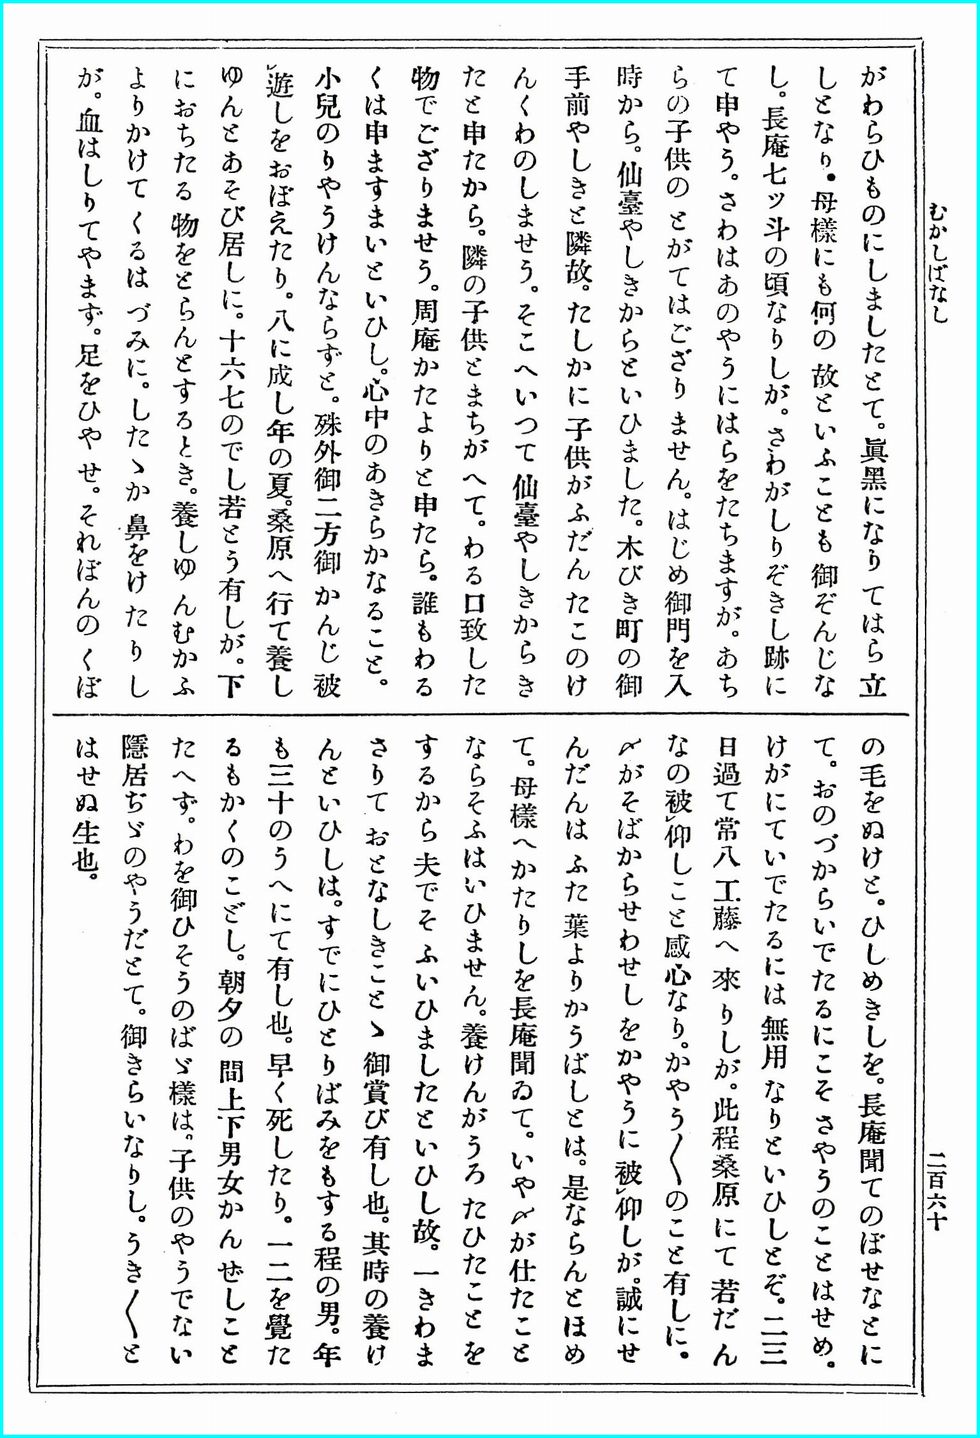 むかしばなし
二百六十
がわらひものにしましたとて。眞黑になりてはら立
しとなり。母樣にも何の故といふことも御ぞんじな
し。長庵七ッ斗の頃なりしが。さわがしりぞきし跡に
て申やう。さわはあのやうにはらをたちますが。あち
らの子供のとがてはござりません。はじめ御門を入
時から。仙臺やしきからといひました。木びき町の御
手前やしきと隣故。たしかに子供がふだんたこのけ
んくわのしませう。そこへいつて仙臺やしきからき
たと申たから。隣の子供とまちがへて。わる口致した
物でござりませう。周庵かたよりと申たら。誰もわる
くは申ますまいといひし。心中のあきらかなること。
小兒のりやうけんならずと。殊外御二方御かんじ被
遊しをおぼえたり。八に成し年の夏。桑原へ行て養し
ゆんとあそび居しに。十六七のでし若とう有しが。下
におちたる物をとらんとするとき。養しゆんむかふ
よりかけてくるはづみに。したゝか鼻をけたりし
が。血はしりてやまず。足をひやせ。それぼんのくぼ
の毛をぬけと。ひしめきしを。長庵聞てのぼせなとに
て。おのづからいでたるにこそさやうのことはせめ。
けがにていでたるには無用なりといひしとぞ。二三
日過て常八工藤へ來りしが。此程桑原にて若だん
なの被仰しこと感心なり。かやう〱のこと有しに。
〆がそばからせわせしをかやうに被仰しが。誠にせ
んだんはふた葉よりかうばしとは。是ならんとほめ
て。母樣へかたりしを長庵聞ゐて。いや〆が仕たこと
ならそふはいひません。養けんがうろたひたことを
するから夫でそふいひましたといひし故。一きわま
さりておとなしきことゝ御賞び有し也。其時の養け
んといひしは。すでにひとりばみをもする程の男。年
も三十のうへにて有し也。早く死したり。一二を覺た
るもかくのこどし。朝夕の間上下男女かんぜしこと
たへず。わを御ひそうのばゞ樣は。子供のやうでない
隱居ぢゞのやうだとて。御きらいなりし。うき〱と
はせぬ生也。